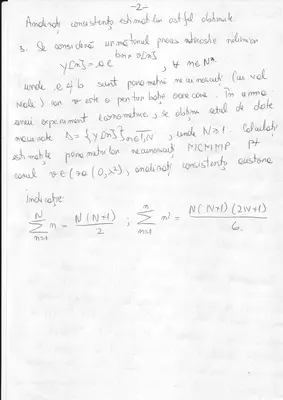 -2-
Analizați consistența estimatiilor astfel obținute.
3. Se consideră următorul proces stochastic neliniar:
y[n] = a e^{bn+v[n]}, ∀ n∈N*.
unde a și b sunt parametrii necunoscuți (cu val
reale) iar v este o perturbație oarecare. În urma
unui experiment economic, se obține setul de date
măsurate D = {y[n]}_{n∈1,N}, unde N≥1. Calculați
estimațiile parametrilor necunoscuți MCMMP. Pt
cazul v∈ (0,λ²), analizați consistența acestora
Indicație:
N
∑ n = N(N+1)/2 ; ∑ n² = N(N+1)(2N+1)/6.
n=1